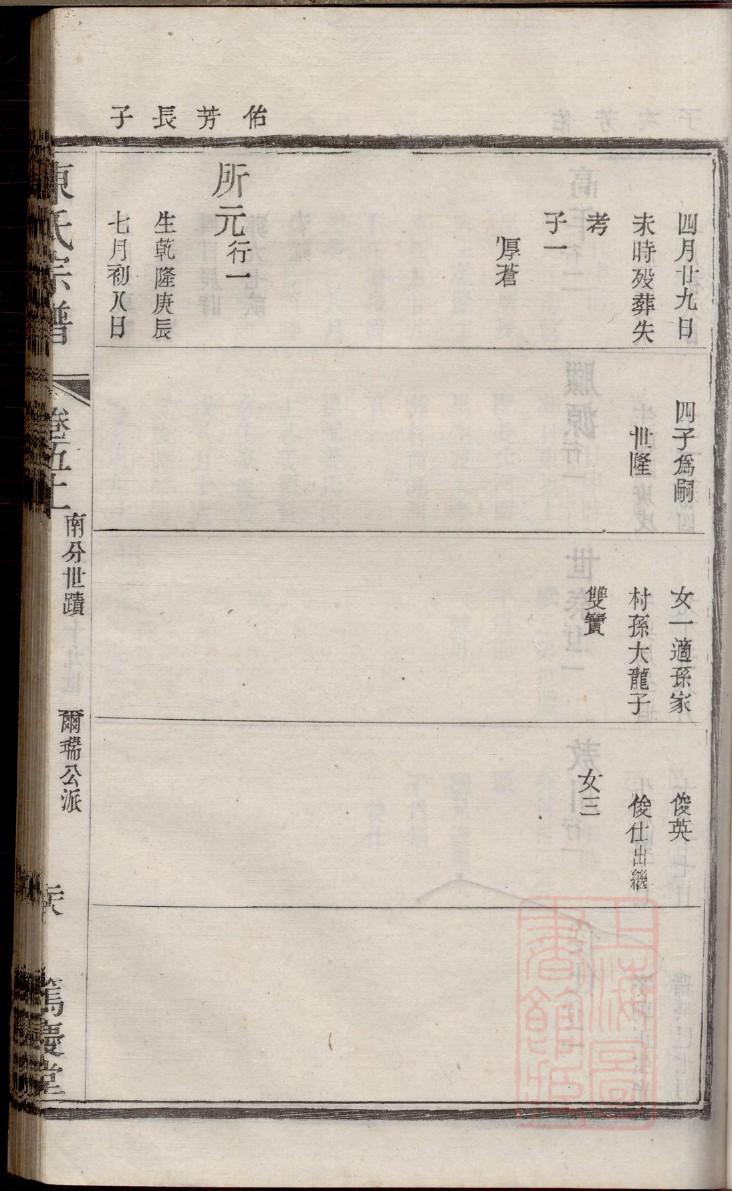 佑芳長子
四月廿九日
未時歿葬失
考
子一
厚蒼
所元行一
生乾隆庚辰
七月初八日
四子爲嗣
世隆
女一適孫家
村孫大龍子
雙寶
俊英
俊仕出繼
女三
陳氏宗譜
卷五上
南分世蹟
爾瑞公派
篤慶堂
上海圖書館藏